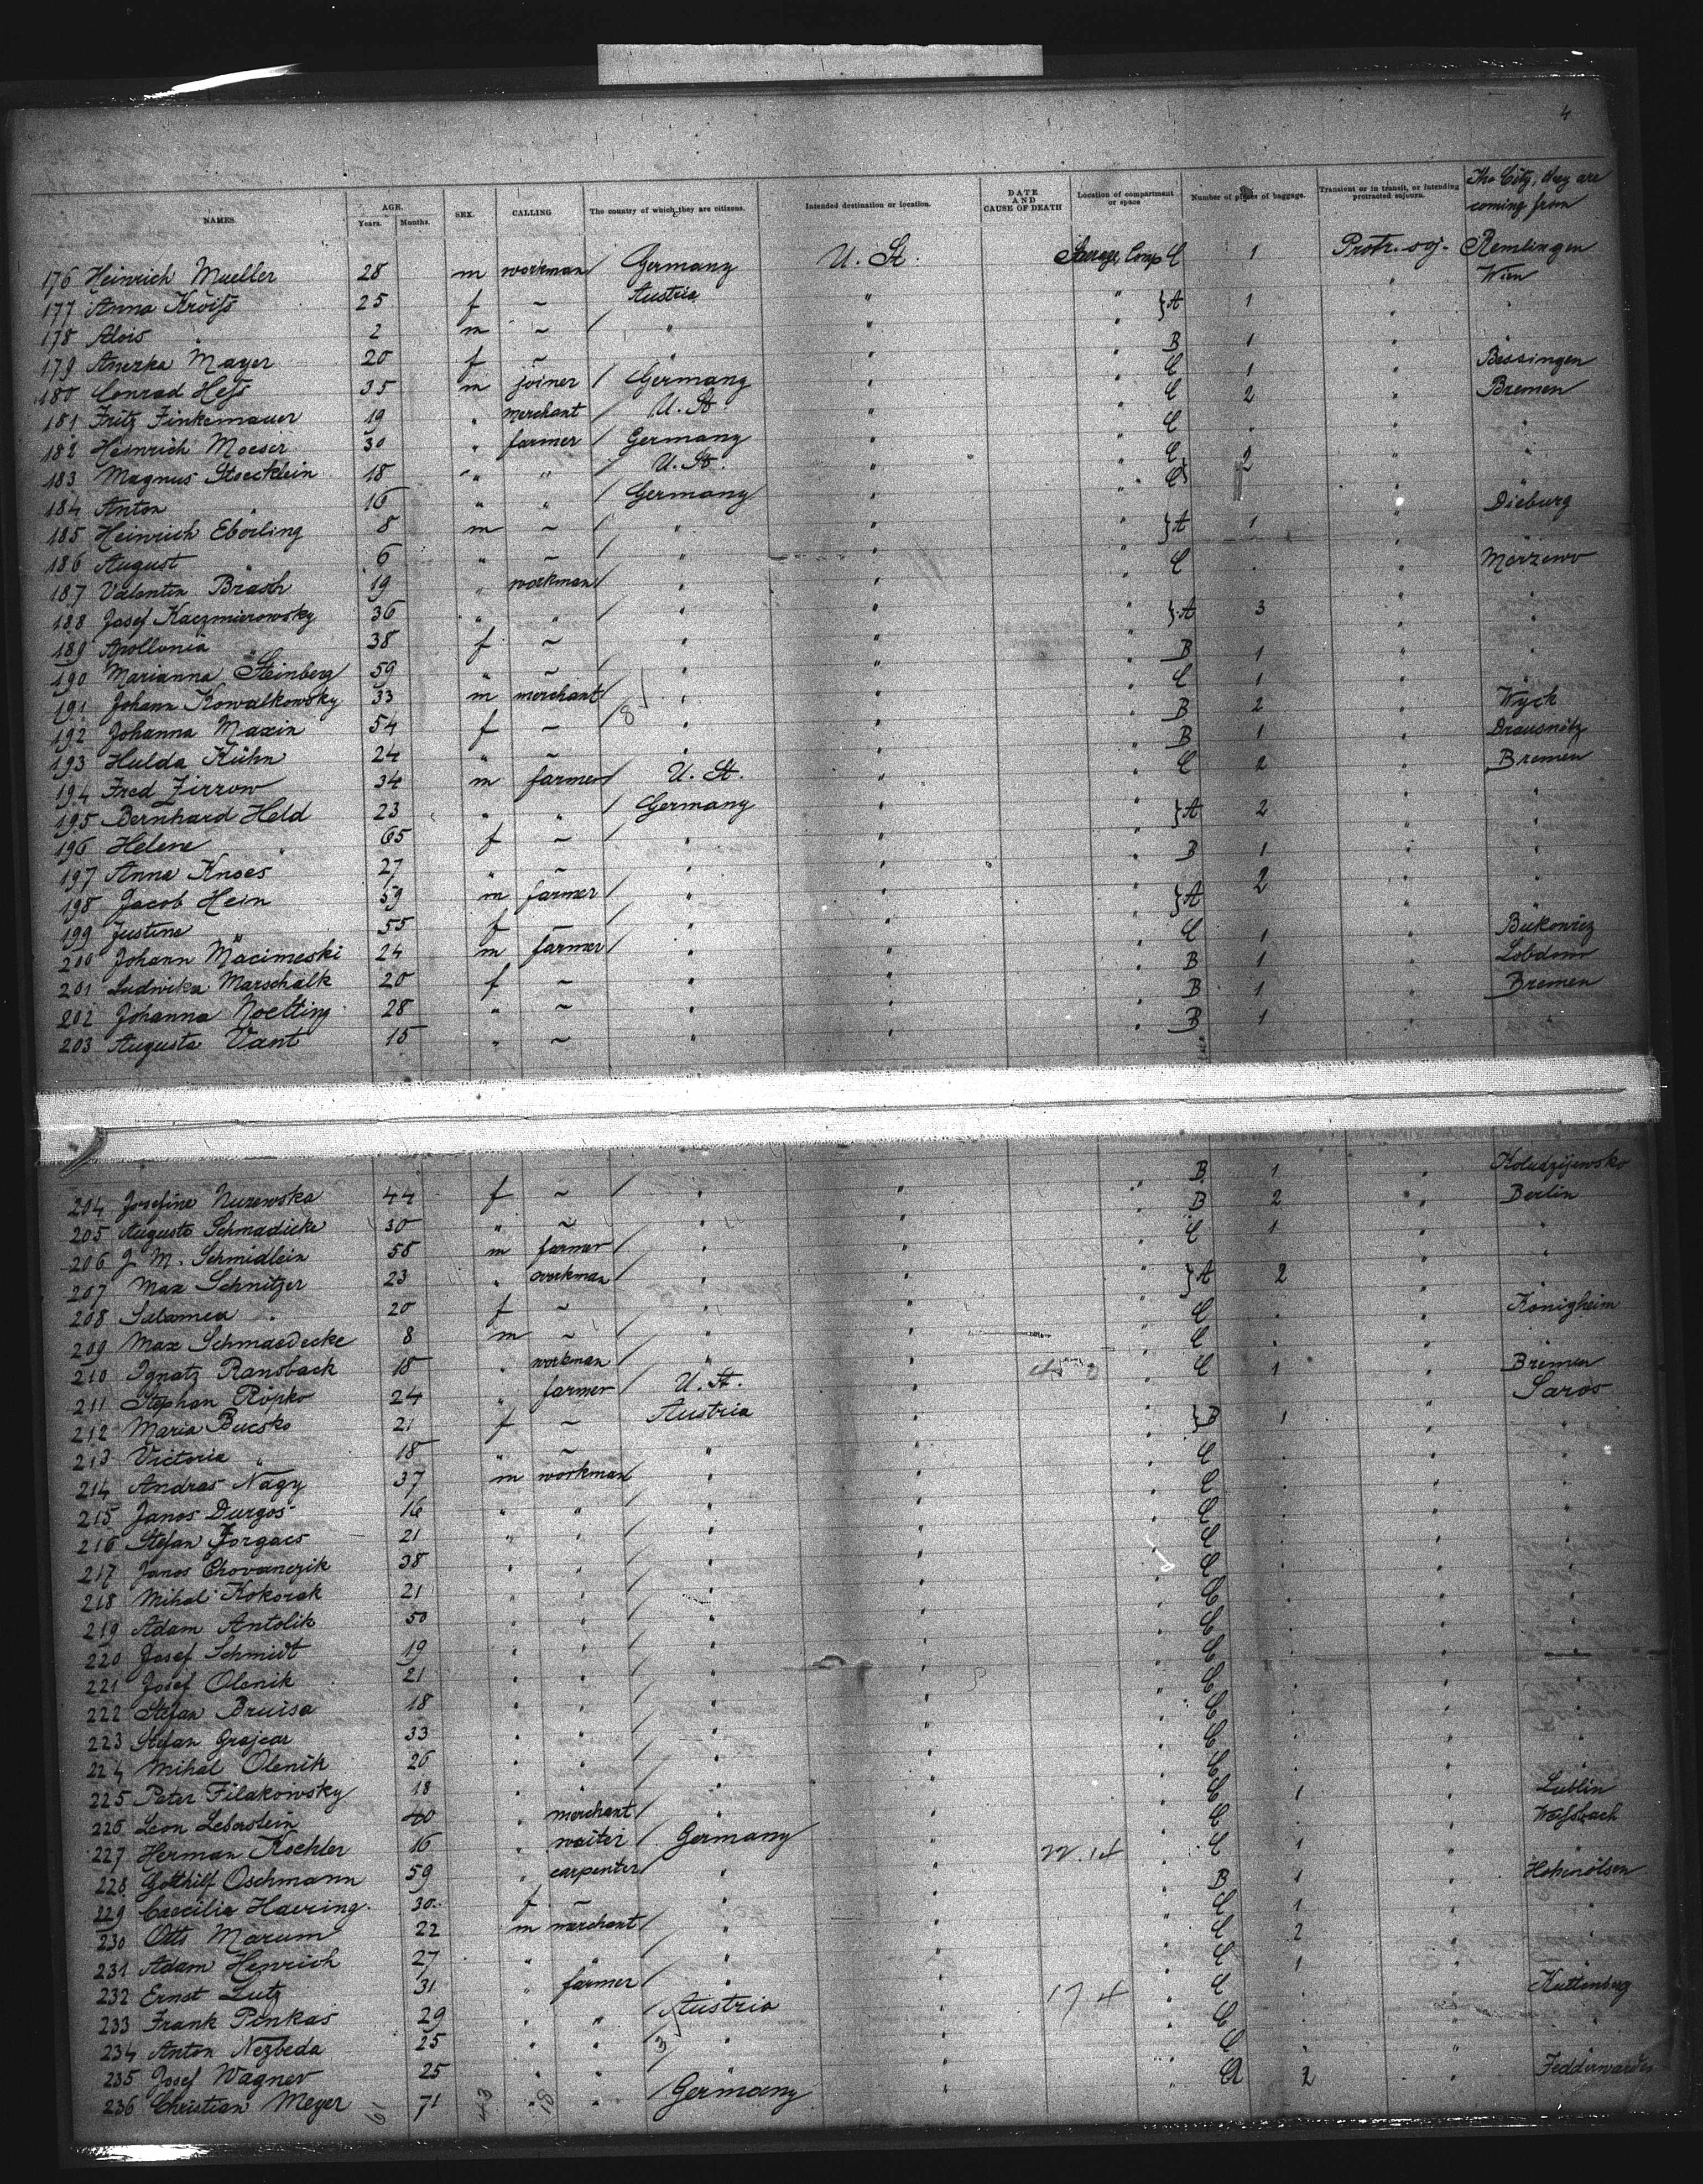 4
NAMES. AGE. Years. Months. SEX. CALLING The country of which they are citizens. Intended destination or location. DATE AND CAUSE OF DEATH Location of compartment or space Number of pieces of baggage. Transient or in transit, or intending protracted sojourn. The City, they are coming from
176 Heinrich Mueller 28 m workman Germany U. St. Steerage Comp C 1 Protr. soj. Remlingen
177 Anna Kroiss 25 f ~ Austria " " } A 1 " Wien
178 Alois " 2 m ~ " " " "
179 Anezka Mayer 20 f ~ " " " B 1 "
180 Conrad Hess 35 m joiner Germany " " C 1 " Bessingen
181 Fritz Finkemauer 19 " merchant U. St. " " C 2 " Bremen
182 Heinrich Moeser 30 " farmer Germany " " C " " "
183 Magnus Stoecklein 18 " " U. St. " " C 2 " "
184 Anton " 16 " " Germany " " C "
185 Heinrich Eberling 8 m ~ " " " } A 1 " Dieburg
186 August " 6 " ~ " " "
187 Valentin Brasch 19 " workman " " " C " " Merzewo
188 Josef Kaczmierowsky 36 " " " " " } A 3 " "
189 Apollonia " 38 f ~ " " "
190 Marianna Steinberg 59 " ~ " " " B 1 " "
191 Johann Kowalkowsky 33 m merchant " " " C 1 "
192 Johanna Maxin 54 f ~ 8 " " " B 2 " Wyck
193 Hulda Kühn 24 " ~ " " " B 1 " Drausnitz
194 Fred Zirrow 34 m farmer U. St. " " C 2 " Bremen
195 Bernhard Held 23 " " Germany " " } A 2 " "
196 Helene " 65 f ~ " " "
197 Anna Knoes 27 " ~ " " " B 1 " "
198 Jacob Hein 59 m farmer " " " } A 2 " "
199 Justine " 55 f ~ " " "
200 Johann Macimeski 24 m farmer " " " C 1 " Bukowiez
201 Ludwika Marschalk 20 f ~ " " " B 1 " Lobdowo
202 Johanna Noetting 28 " ~ " " " B 1 " Bremen
203 Augusta Vant 15 " ~ " " " B 1 " "
204 Josefine Nurewska 44 f ~ " " " B 1 " Koludzijewsko
205 Augusta Schmadicke 30 " ~ " " " B 2 " Berlin
206 J. M. Schmidlein 58 m farmer " " " C 1 " "
207 Max Schnitzer 23 " workman " " " } A 2 " "
208 Salomea " 20 f ~ " " "
209 Max Schmaedecke 8 m ~ " " " C
210 Ignatz Ransback 18 " workman " " " C " " Königheim
211 Stephan Röpko 24 " farmer U. St. " " C 1 " Bremen
212 Maria Bucsko 21 f ~ Austria " " } B 1 " Saros
213 Victoria " 18 " ~ " " "
214 Andras Nagy 37 m workman " " " C " " "
215 Janos Durgos 16 " " " " " C " " "
216 Stefan Forgacs 21 " " " " " C " " "
217 Janos Chovanczik 38 " " " " " C " " "
218 Mihal Kokorak 21 " " " " " C " " "
219 Adam Antolik 50 " " " " " C " " "
220 Josef Schmidt 19 " " " " " C " " "
221 Josef Olenik 21 " " " " " C " " "
222 Stefan Bruisa 18 " " " " " C " " "
223 Stefan Grajcar 33 " " " " " C " " "
224 Mihal Olenik 26 " " " " " C " " "
225 Peter Filakowsky 18 " " " " " C " " "
226 Leon Leberstein 40 " merchant " " " C 1 " Lublin
227 Herman Kochler 16 " waiter Germany " " C " " Weissbach
228 Gotthilf Oschmann 59 " carpenter " " 22. 14 " C 1 " "
229 Caecilia Haering 30 f ~ " " " B 1 " Hohenölsen
230 Otto Marum 22 m merchant " " " C 1 " "
231 Adam Henrich 27 " " " " " C 2 " "
232 Ernst Lutz 31 " farmer " " " C 1 " "
233 Frank Penkas 29 " " Austria " 17 4 " C " " Kuttenberg
234 Anton Nezbeda 25 " " 3 " " " C " "
235 Josef Wagner 25 " " " " " C " "
236 Christian Meyer 71 " " Germany " " A 2 " Fedderwarden
61 43 18